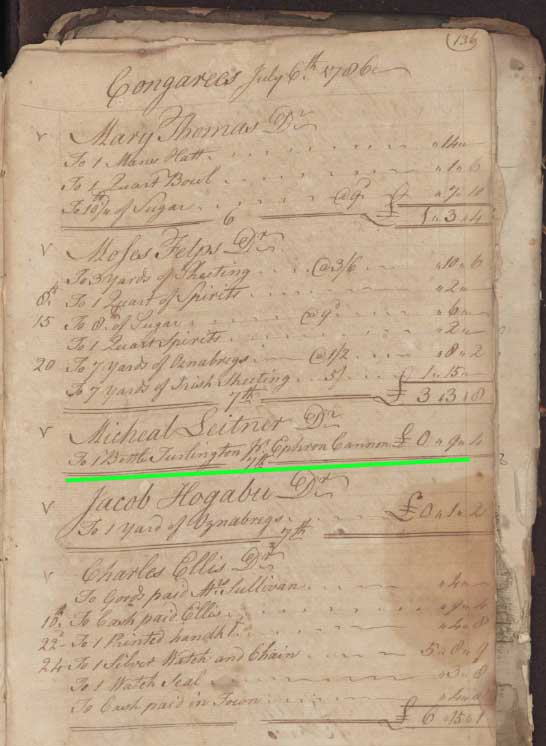 136
Congarees July 6th 1786
v Mary Thomas Dr
To 1 Mans Hatt " 14 "
To 1 Quart Bowl " 1 " 6
To of Sugar @ 9 £ " 7 " 10
6 £ 1 " 3 " 4
v Moses Felps Dr
To 3 Yards of Sheeting @ 3/6 " 10 " 6
8th To 1 Quart of Spirits " 2 "
15 To 8 of Sugar @ 9d " 6 "
To 1 Quart Spirits " 2 "
20 To 7 Yards of Oznabrigs @ 1/2 " 8 " 2
To 7 Yards of Irish Sheeting 5/ 1 " 15 "
7th £ 3 " 3 " 8
v Micheal Leitner Dr
To 1 Bottle Turlington Ephron Cannon £ 0 " 9 " 4
7th
v Jacob Hogabu Dr
To 1 Yard of Oznabrigs £ 0 " 1 " 2
7th
v Charles Ellis Dr
To Goods paid Sullivan " 4 "
18th To Cash paid Ellis " 9 " 4
22d To 1 Printed handkf " 4 " 8
24 To 1 Silver Watch and Chain 5 " 8 " 9
To 1 Watch Seal " 3 " 8
To Cash paid in Town
£ 6 " 15 " 1